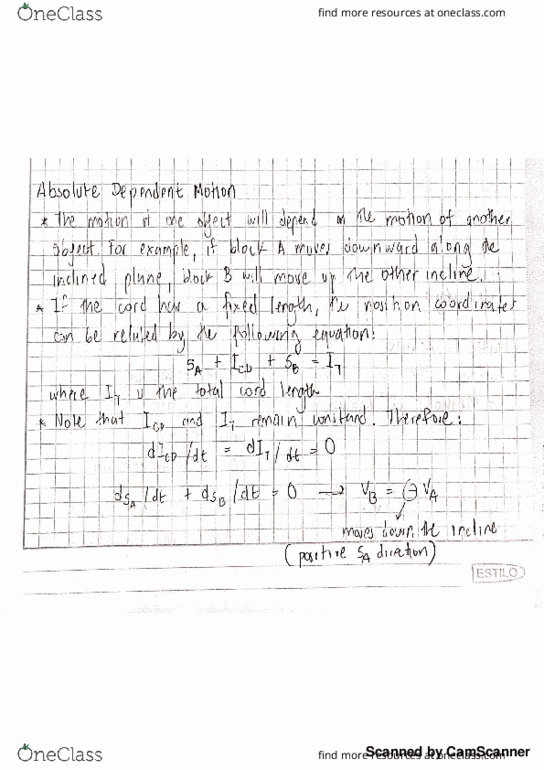 OneClass
find more resources at oneclass.com
Absolute Dependent Motion
* The motion of one object will depend on the motion of another
object. For example, if block A moves downward along the
inclined plane, block B will move up the other incline.
* If the cord has a fixed length, the position coordinates
can be related by the following equation:
S_A + I_CD + S_B = I_T
where I_T is the total cord length
* Note that I_CD and I_T remain constant. Therefore:
dI_CD/dt = dI_T/dt = 0
ds_A/dt + ds_B/dt = 0 → V_B = -V_A
moves down the incline
(positive S_A direction)
ESTILO
OneClass
find more resources at oneclass.com
Scanned by CamScanner